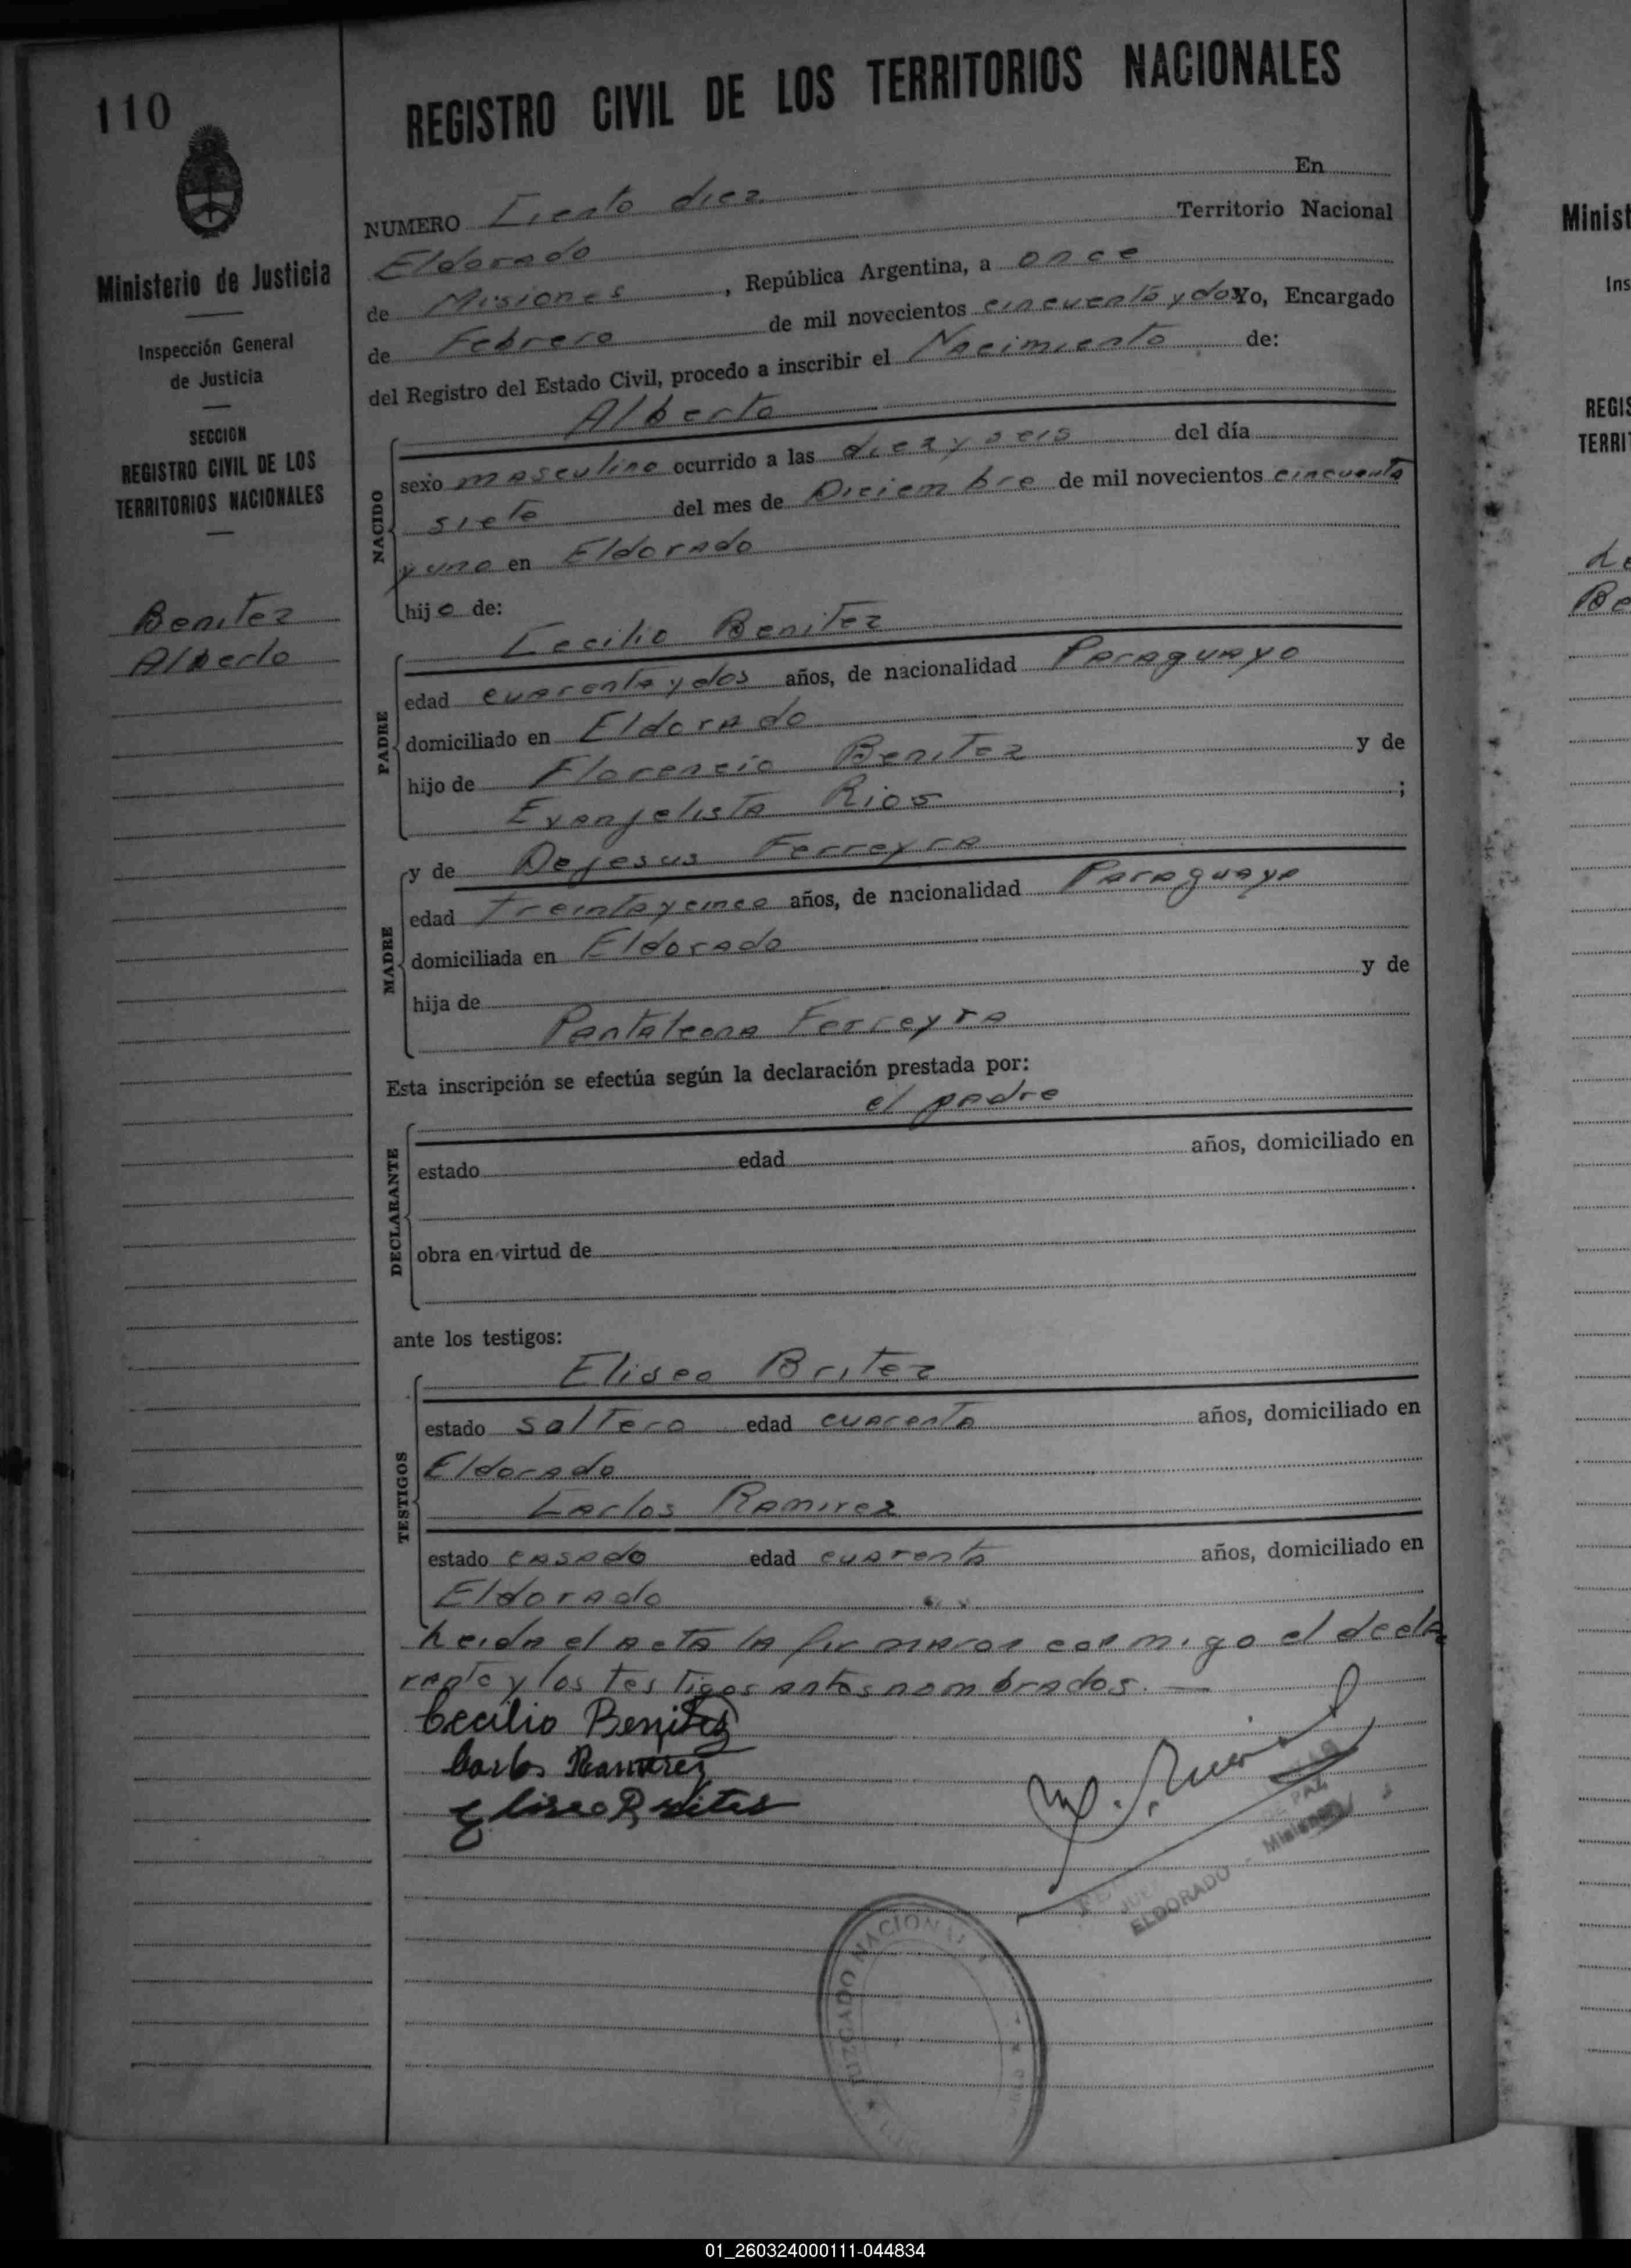 110
REGISTRO CIVIL DE LOS TERRITORIOS NACIONALES
Ministerio de Justicia
Inspección General
de Justicia
SECCION
REGISTRO CIVIL DE LOS
TERRITORIOS NACIONALES
Benitez
Alberto
NUMERO Ciento diez En
Eldorado Territorio Nacional
de Misiones, República Argentina, a once
de Febrero de mil novecientos cincuenta y dos Yo, Encargado
del Registro del Estado Civil, procedo a inscribir el Nacimiento de:
NACIDO
Alberto
sexo masculino ocurrido a las diez y seis del día
siete del mes de Diciembre de mil novecientos cincuenta
y uno en Eldorado
hijo de:
PADRE
Cecilio Benitez
edad cuarenta y dos años, de nacionalidad Paraguayo
domiciliado en Eldorado
hijo de Florencio Benitez y de
Evanjelista Rios ;
MADRE
y de Dejesus Ferreyra
edad treinta y cinco años, de nacionalidad Paraguaya
domiciliada en Eldorado
hija de y de
Pantaleona Ferreyra
Esta inscripción se efectúa según la declaración prestada por:
DECLARANTE
el padre
estado edad años, domiciliado en
obra en virtud de
ante los testigos:
TESTIGOS
Eliseo Britez
estado soltero edad cuarenta años, domiciliado en
Eldorado
Carlos Ramirez
estado casado edad cuarenta años, domiciliado en
Eldorado
Leida el acta la firmaron conmigo el decla
rante y los testigos antes nombrados. —
Cecilio Benitez
Carlos Ramirez
Eliseo Britez
DE PAZ
ELDORADO - Misiones
JUZGADO NACIONAL
Minist
Ins
REGIS
TERRI
Be
01_260324000111-044834